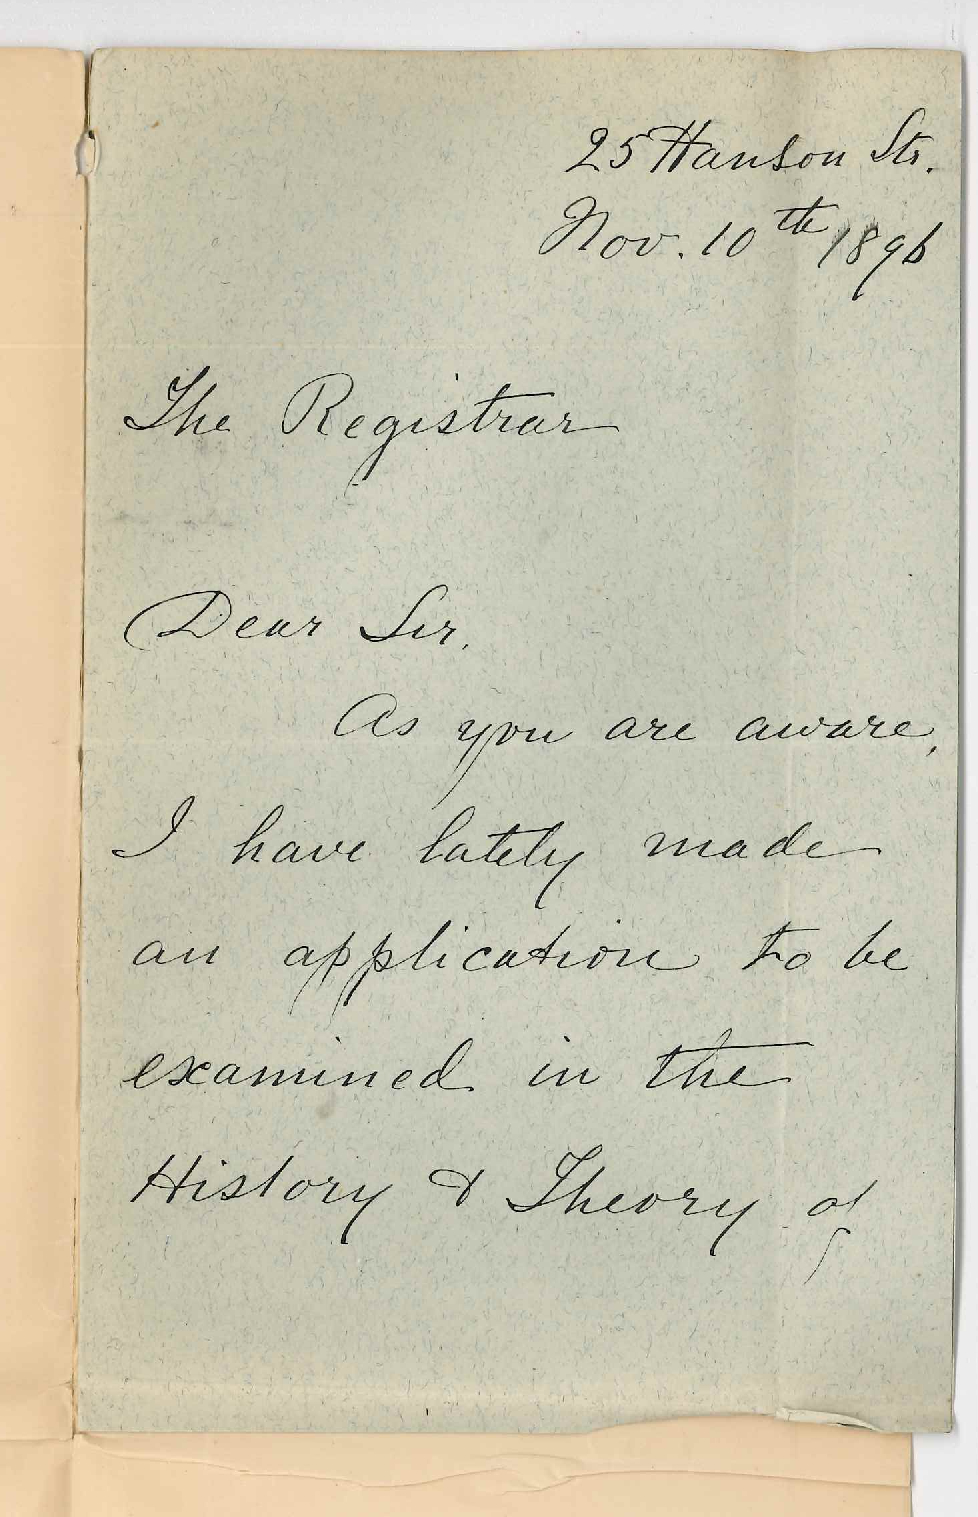 25 Hanson Str.
Nov. 10th 1896
The Registrar
Dear Sir,
As you are aware,
I have lately made
an application to be
examined in the
History & Theory of